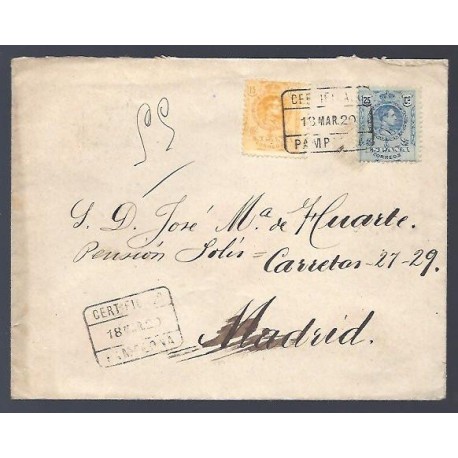 15
25
15
25
ESPAÑA
CORREOS
CERTIFICADO
18 MAR.20
PAMP
S. D. José Mª de Huarte.
Pensión Solís = Carretas-27-29.
Madrid.
CERTIFI
18 MAR.20
PAMPLONA